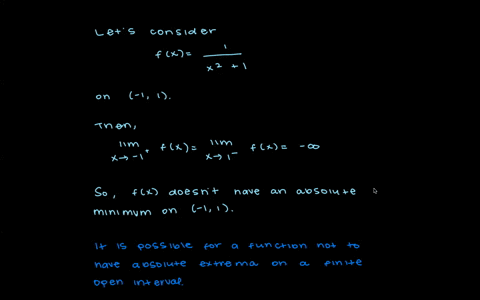 Let's consider
f(x) = 1 / x² + 1
on (-1, 1).
Then,
lim x→-1⁺ f(x) = lim x→1⁻ f(x) = -∞
So, f(x) doesn't have an absolute
minimum on (-1, 1).
It is possible for a function not to
have absolute extrema on a finite
open interval.